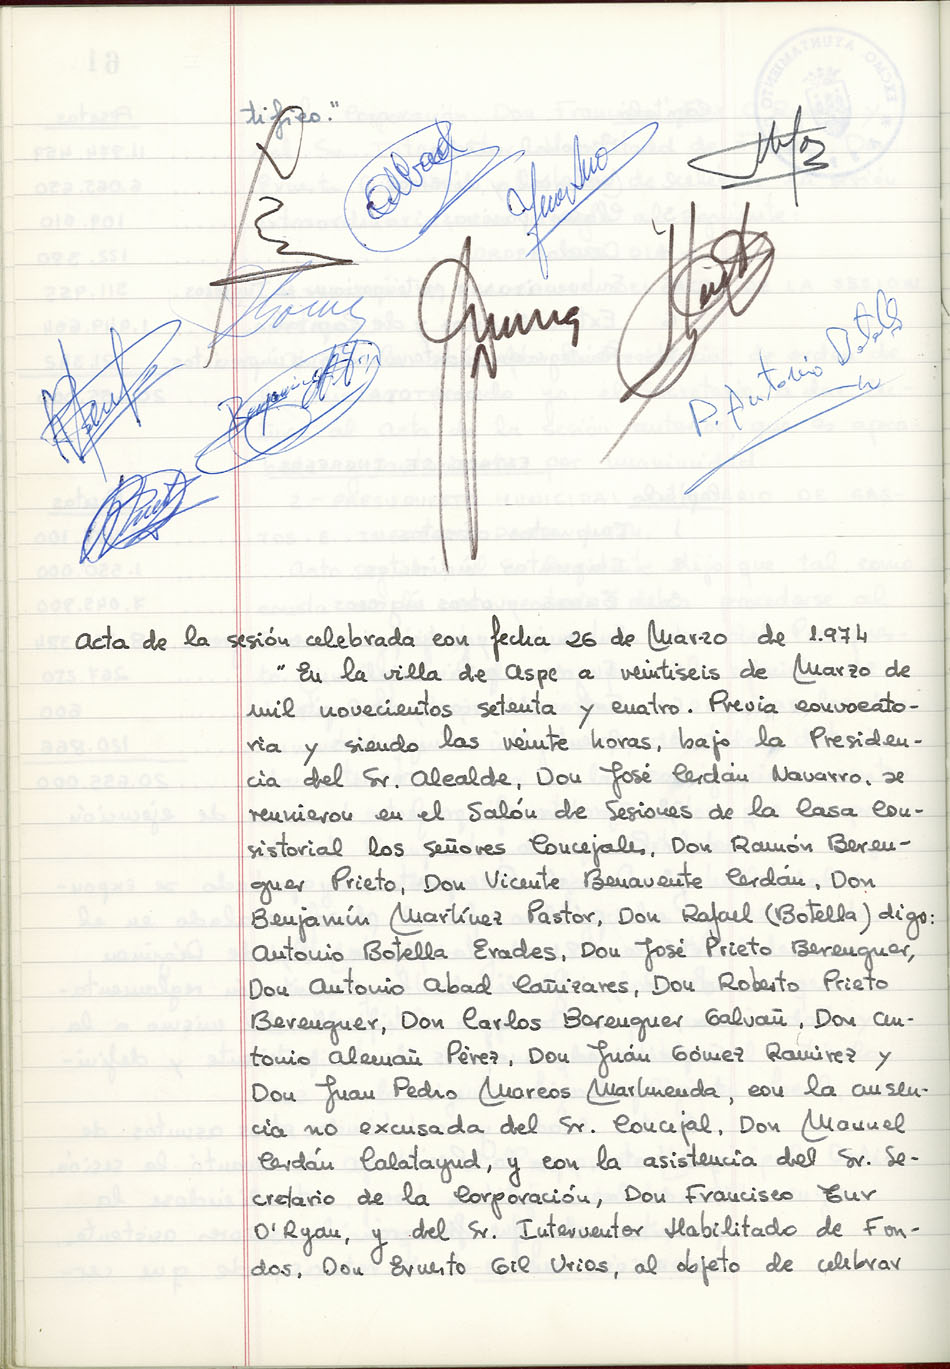 tífico."
Abad
Benjamín
P. Antonio Botella
Acta de la sesión celebrada con fecha 26 de Marzo de 1.974
"En la villa de Aspe a veintiseis de Marzo de
mil novecientos setenta y cuatro. Previa convocato-
ria y siendo las veinte horas, bajo la Presiden-
cia del Sr. Alcalde, Don José Cerdán Navarro, se
reunieron en el Salón de Sesiones de la Casa Con-
sistorial los señores Concejales, Don Ramón Beren-
guer Prieto, Don Vicente Benavente Cerdán, Don
Benjamín Martínez Pastor, Don Rafael (Botella) digo:
Antonio Botella Erades, Don José Prieto Berenguer,
Don Antonio Abad Cañizares, Don Roberto Prieto
Berenguer, Don Carlos Berenguer Galvañ, Don An-
tonio Alemañ Pérez, Don Juán Gómez Ramirez y
Don Juan Pedro Marcos Marhuenda, con la ausen-
cia no excusada del Sr. Concejal, Don Manuel
Cerdán Calatayud, y con la asistencia del Sr. Se-
cretario de la Corporación, Don Francisco Tur
O'Ryan, y del Sr. Interventor Habilitado de Fon-
dos, Don Ernesto Gil Urios, al objeto de celebrar